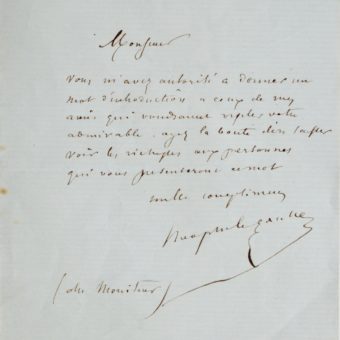 Monsieur
Vous m'avez autorisé a donner un
mot d'introduction a ceux de mes
amis qui voudraient visiter votre
admirable. ayez la bonté de laisser
voir les richesses aux personnes
qui vous présenteront ce mot
mille complimens
Theophile Gautier
(du Moniteur)